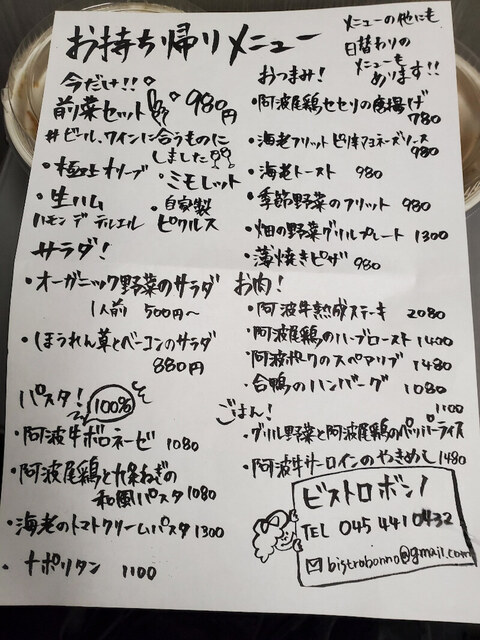 お持ち帰りメニュー
メニューの他にも
日替わりの
メニューも
あります!!
今だけ!!
前菜セット 980円
#ビール、ワインに合うものに
しました
・極上オリーブ
・ミモレット
・生ハム
ハモンデテルエル
・自家製
ピクルス
サラダ!
・オーガニック野菜のサラダ
1人前 500円~
・ほうれん草とベーコンのサラダ
880円
パスタ!
100%
・阿波牛ボロネーゼ 1080
・阿波尾鶏と九条ねぎの
和風パスタ 1080
・海老のトマトクリームパスタ 1300
・ナポリタン 1100
おつまみ!
・阿波尾鶏セセリの唐揚げ
780
・海老フリットピリ辛マヨネーズソース
980
・海老トースト 980
・季節野菜のフリット 980
・畑の野菜グリルプレート 1300
・薄焼きピザ 980
お肉!
・阿波牛熟成ステーキ 2080
・阿波尾鶏のハーブロースト 1400
・阿波ポークのスペアリブ 1480
・合鴨のハンバーグ 1080
ごはん!
1100
・グリル野菜と阿波尾鶏のペッパーライス
・阿波牛サーロインのやきめし 1480
ビストロボンノ
TEL 045 441 0432
bistrobonno@gmail.com